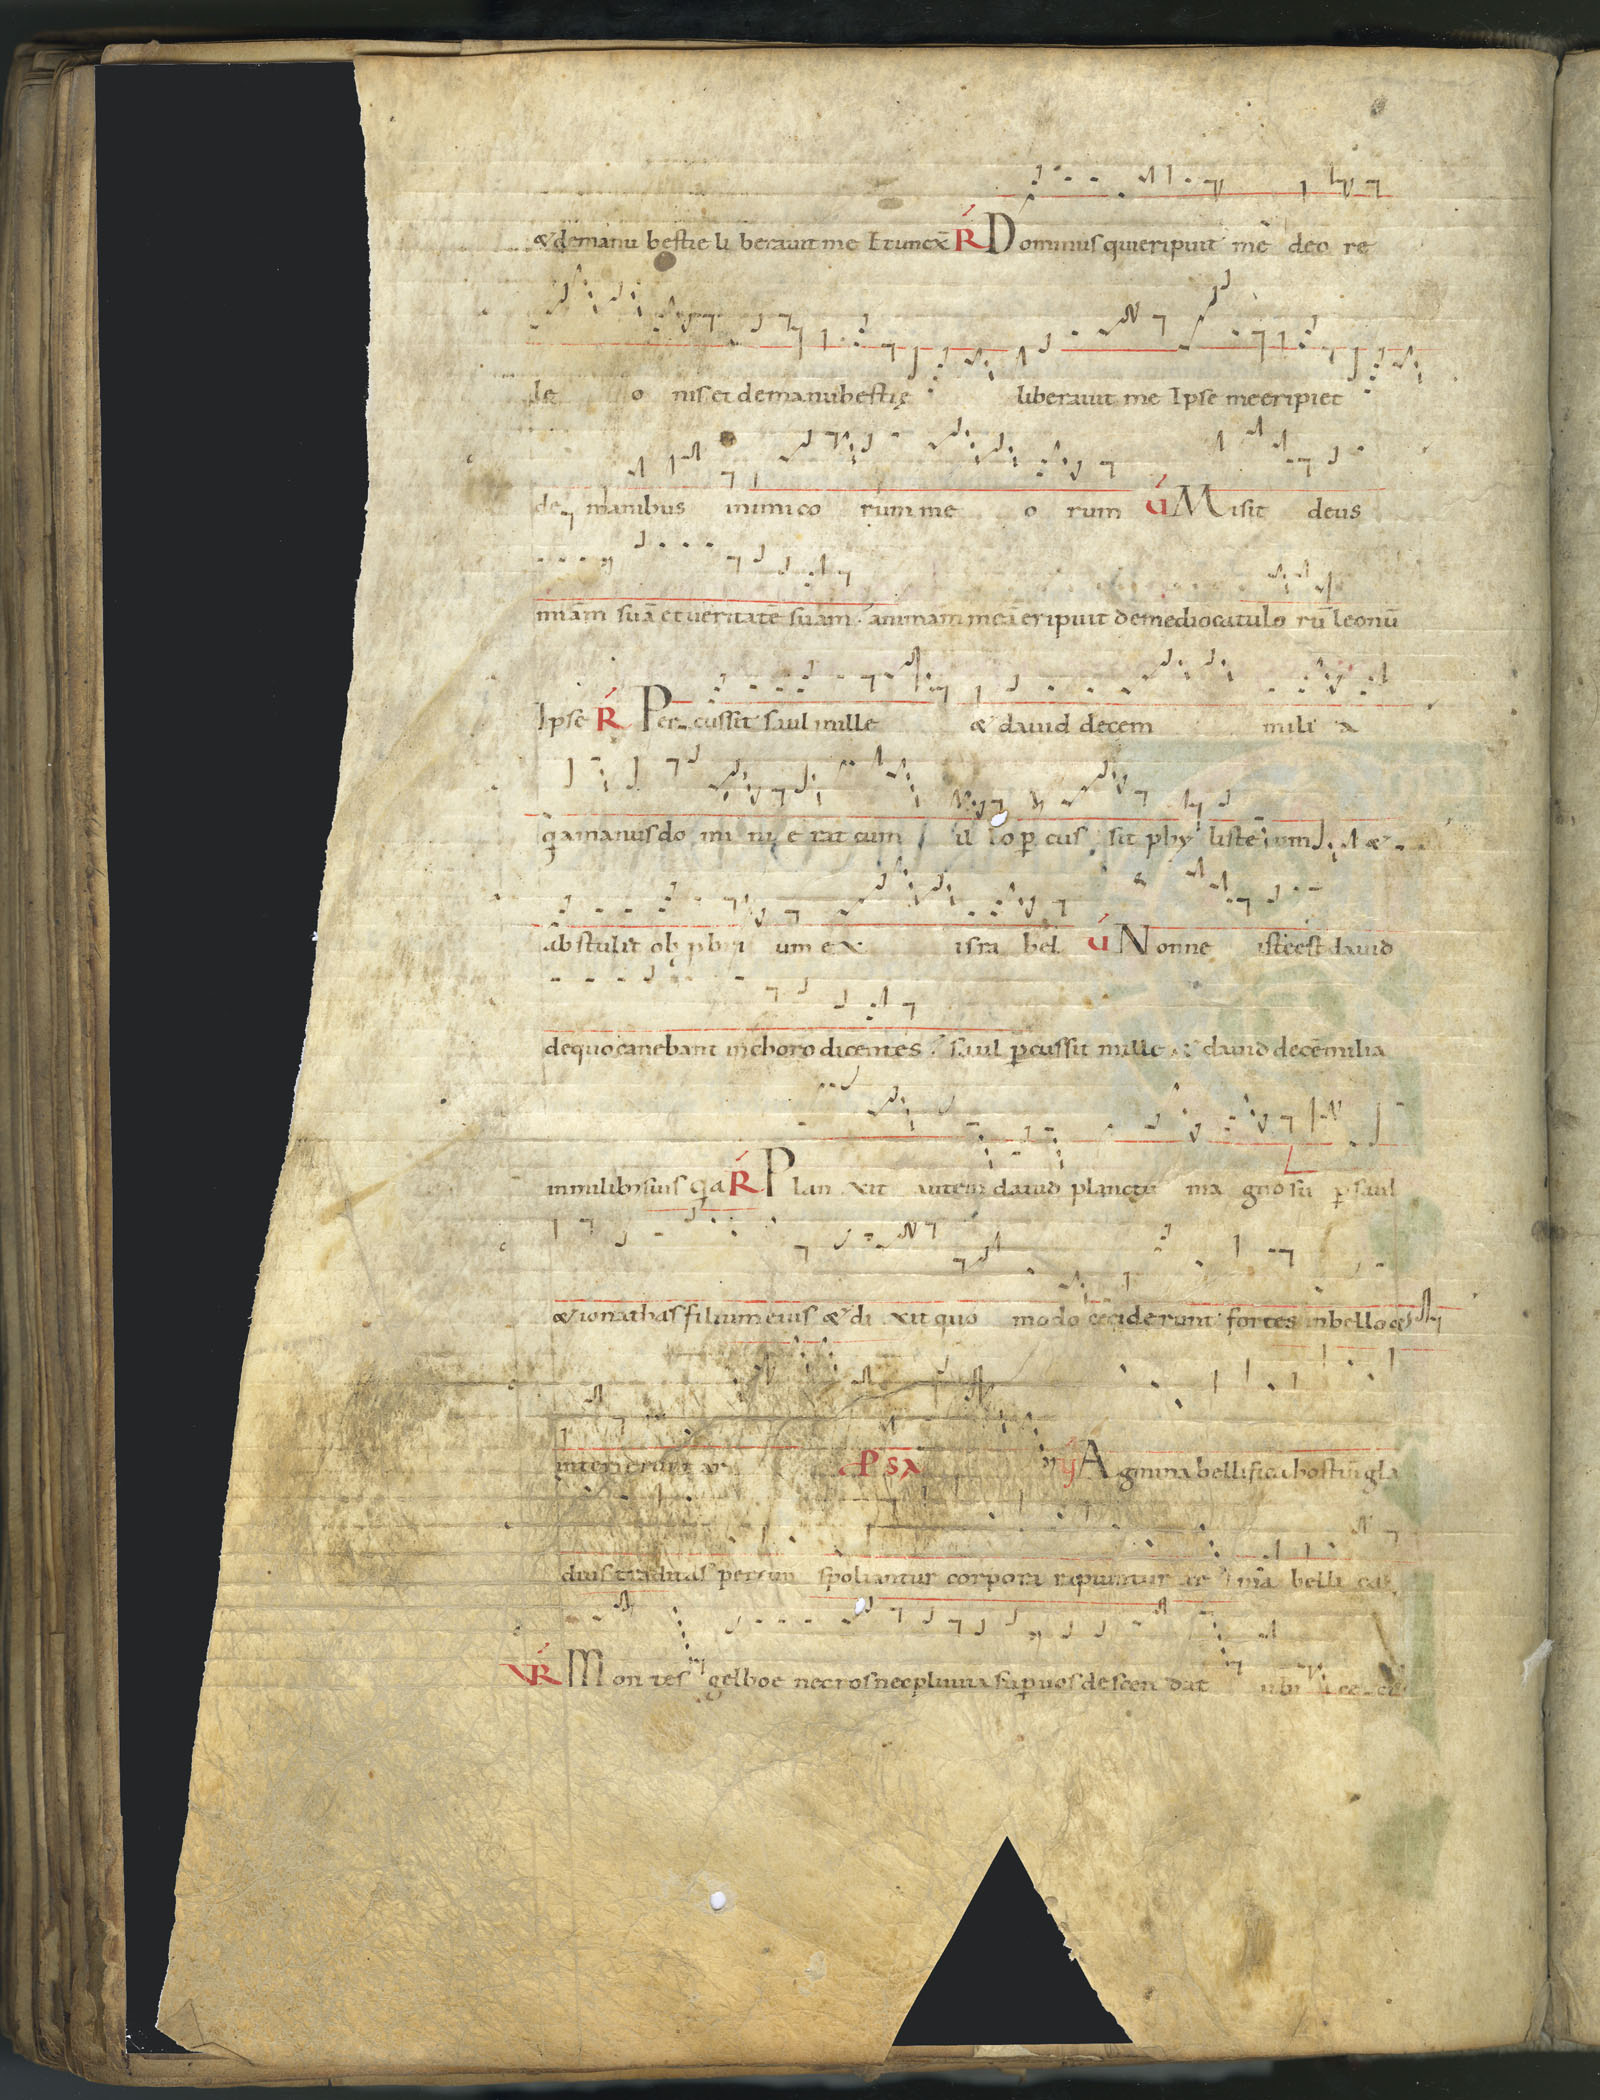 & de manu bestie li berauit me Et unctx̄ R Dominus qui eripuit mē de o re
le o nis et de manu bestię liberauit me Ipse me eripiet
de manibus inimico rum me o rum V Misit deus
miam̄ suā et ueritatē suam. animam meā eripuit de medio catulo rū leonū
Ipse R Per cussit saul mille & dauid decem mili a
q̄a manus do mi ni e rat cum il lo ꝑ cus sit phy listeum &
abstulit obp̄bri um ex isra hel V Nonne iste est dauid
de quo canebant in choro dicentes. saul ꝑcussit mille & dauid decē milia
in milibus suis q̄a R Plan xit autem dauid planctu ma gno su ꝑ saul
& ionathas filium eius & di xit quo modo ceciderunt fortes in bello &
interierunt ar PSA V Agmina bellifica hostiū gla
spoliantur corpora rapiuntur ar ma belli ca
VR Mon tes gelboe nec ros nec pluuia suꝑ uos descen dat ubi ce